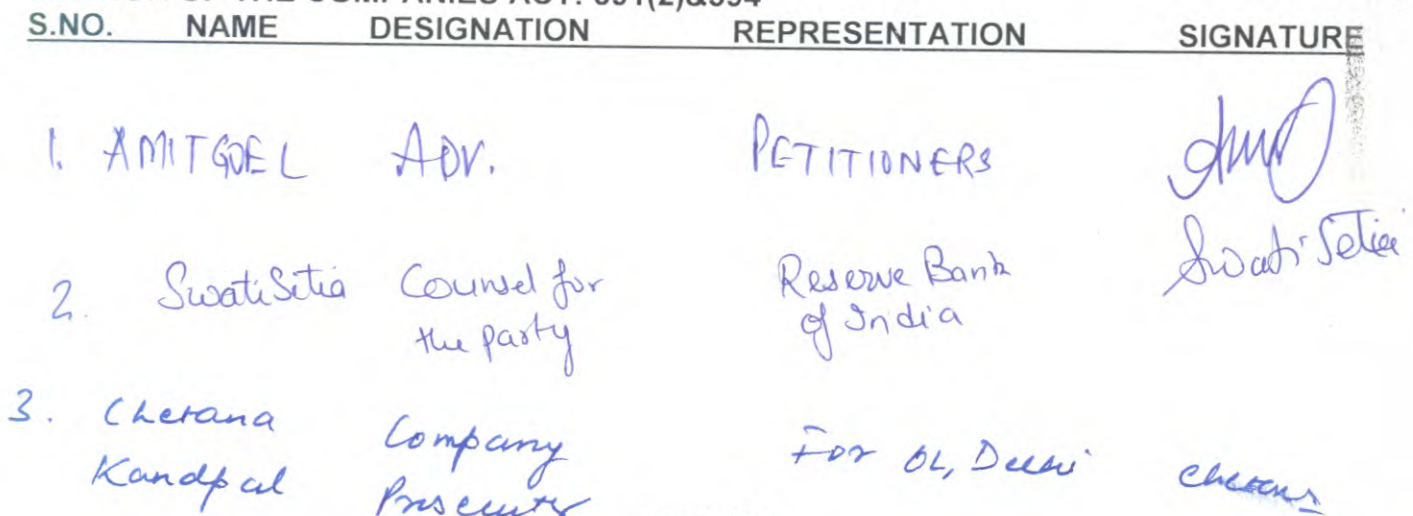 S.NO. NAME DESIGNATION REPRESENTATION SIGNATURE
1. AMIT GOEL ADV. PETITIONERS
2. Swati Setia Counsel for the party Reserve Bank of India Swati Setia
3. Chetana Kandpal Company Prosecutor For OL, Delhi Chetana